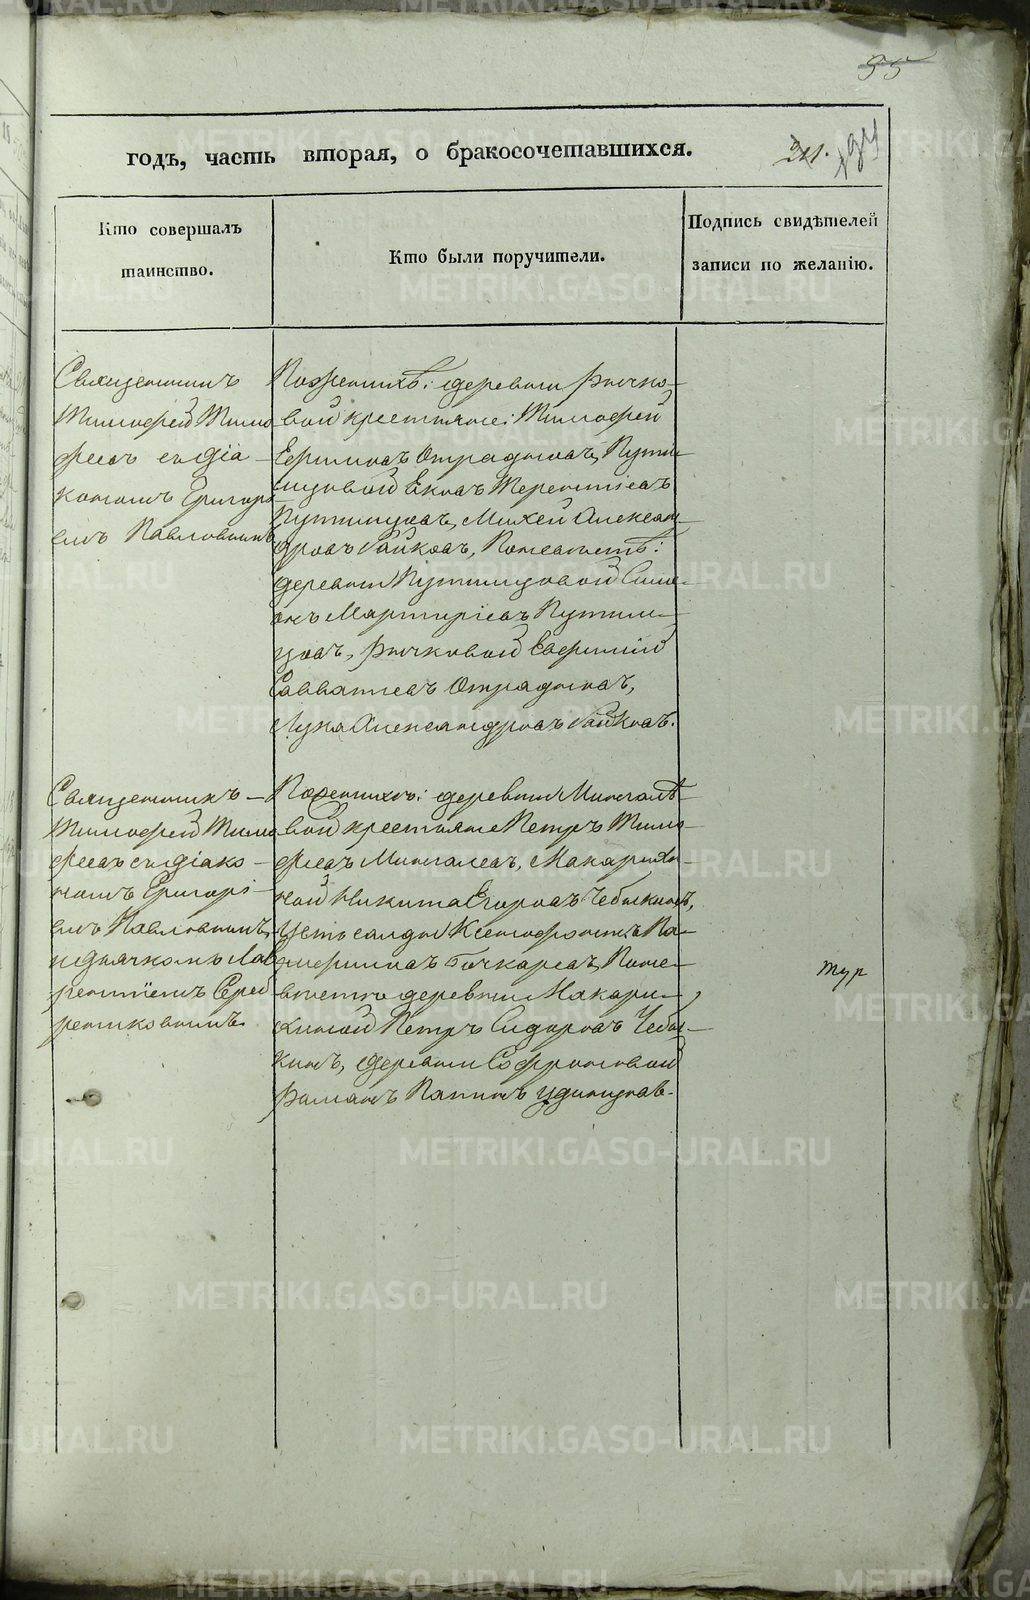 55
годъ, часть вторая, о бракосочетавшихся.
Кто совершалъ
таинство.
Кто были поручители.
Подпись свидѣтелей
записи по желанію.
Священникъ
Тимофей Тимо
феевъ съ діа-
кономъ Григорі-
емъ Павловымъ
По женихѣ: деревни Рычко-
вой крестьяне: Тимофей
Ефимовъ Отрадновъ, Путил-
цовой Терентіевъ
Путилцовъ, Михей Алексан-
дровъ Райковъ, По невѣстѣ:
деревни Путилцовой Сим-
онъ Мартиріевъ Путил-
цовъ, Рычковой Евфимій
Савватиевъ Отрадновъ,
Лука Александровъ Райковъ.
Священникъ
Тимофей Тимо
феевъ съ діако-
номъ Григорі-
емъ Павловымъ
и дьячкомъ Лав
рентіемъ Сереб
ренниковымъ
По женихѣ: деревни Мингалѣ-
вой крестьяне Петръ Тимо-
феевъ Мингалевъ, Макарих-
ной Никита Егоровъ Чебыкинъ,
Усть салды Ксенофонтъ Па-
мфиловъ Бочкаревъ, По не-
вѣсте деревни Макари-
хиной Петръ Сидоровъ Чебы-
кинъ, деревни Софроновой
Романъ
тур
METRIKI.GASO-URAL.RU